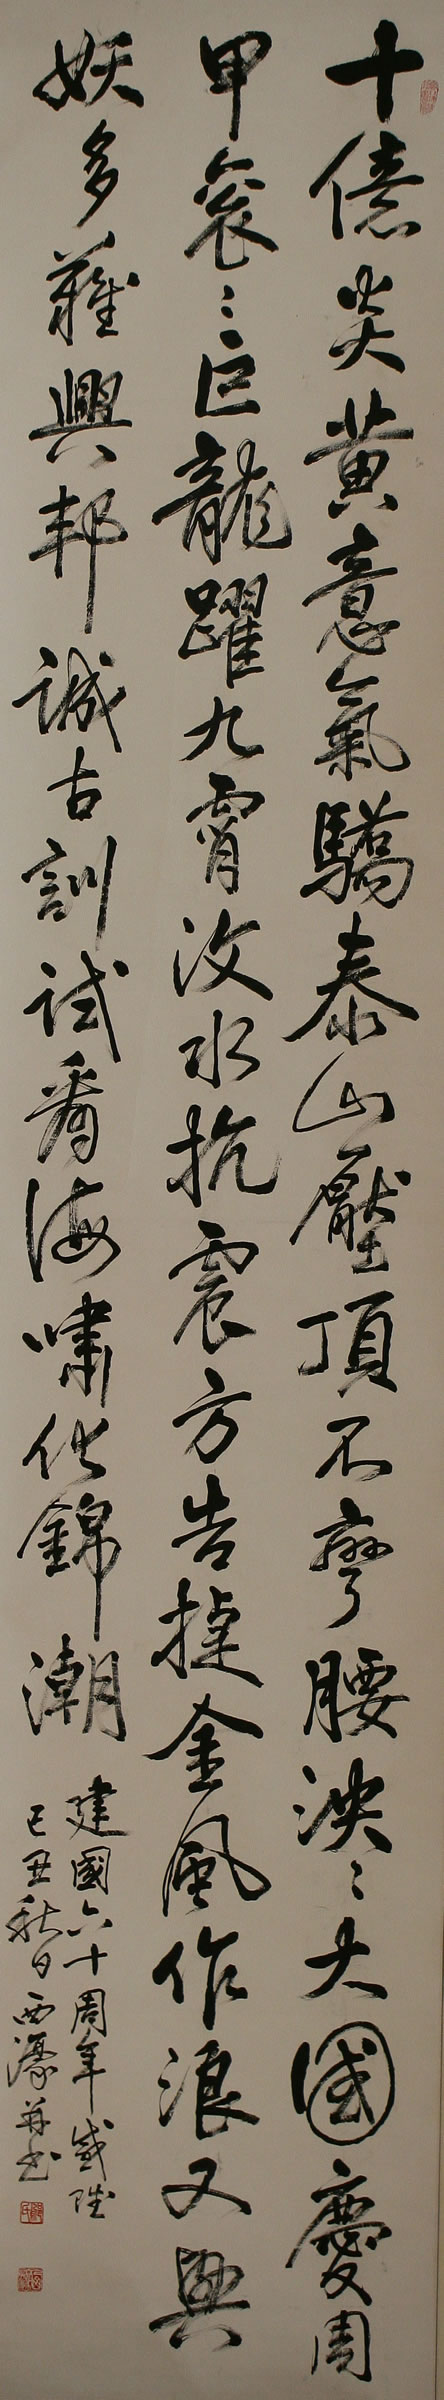 十億炎黄意氣驕泰山壓頂不彎腰泱〻大國慶周
甲衮〻巨龍躍九霄汶水抗震方告捷金風作浪又興
妖多難興邦誠古訓試看海嘯化錦潮
建國六十周年感賦
己丑秋日西濠并书